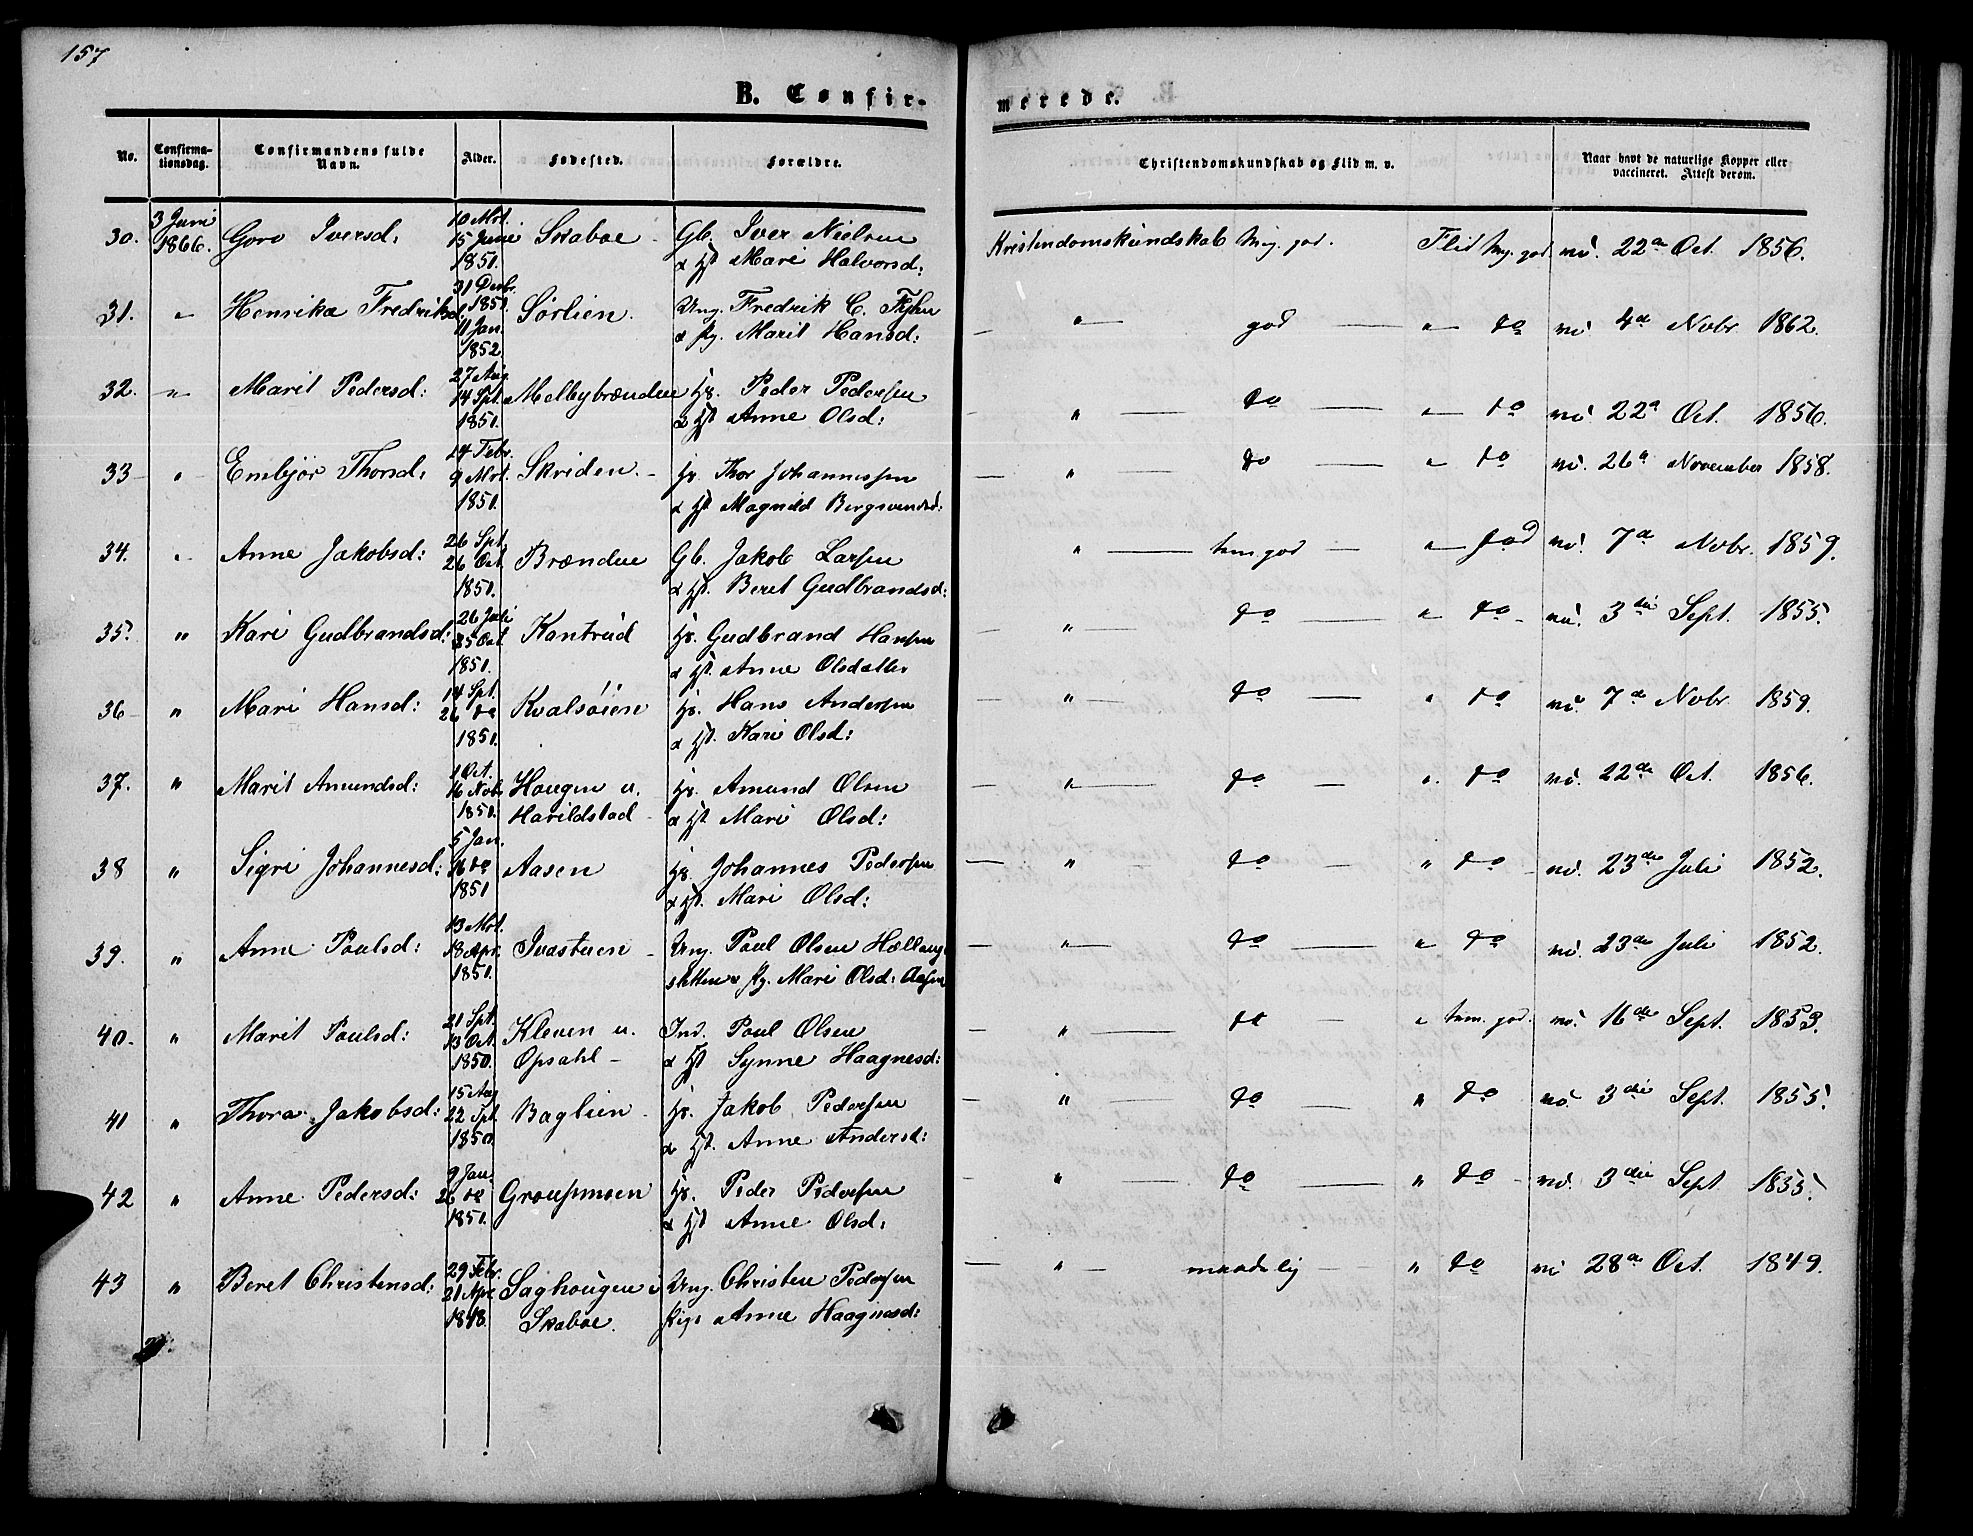 157
B. Confir-
merede.
No.
Confirma-
tionsdag.
Confirmandens fulde
Navn.
Alder.
Fødested.
Forældre.
Christendomskundskab og Flid m. v.
Naar havt de naturlige Kopper eller
vaccineret. Attest derom.
30. 3 Juni 1866. Goro Iversd: 10 Mrt. 15 Juni 1851. Skaboe - Gb. Iver Nielsen & Hst Mari Halvorsd: Kristendomskundskab mg. god. Flid mg. god va. 22de Oct. 1856.
31. " Henrika Fredriksd. 31 Decbr. 1851. 11 Jan. 1852 Sørlien. Ung. Fredrik C. & Pg. Marit Hansd: — " — god — " — do va. 4de Novbr 1862.
32. " Marit Pedersd: 27 Aug. 14 Spt. 1851. Melbybrænden Hs. Peder Pedersen & Hst Anne Olsd: — " — do — " — do va. 22de Oct. 1856.
33 " Embjør Thorsd. 14 Febr. 9 Mrt. 1851. Skriden. - Hs. Thor Johannessen & Hst Magnild Bergsvendsd: — " — do — " do va. 26de November 1858.
34. " Anne Jakobsd: 26 Spt. 26 Oct. 1851. Brænden Gb. Jakob Larsen & Hst. Beret Gudbrandsd: " — tem. god — " — god va. 7de Novbr. 1859.
35. " Kari Gudbrandsd: 26 Juli 25 Oct 1851. Kantrud Hs. Gudbrand Hansen & Hst. Anne Olsdatter — " — do — " do - va. 3die Sept. 1855.
36 " Mari Hansd: 14 Spt. 26 do 1851. Kvalsøien Hs. Hans Andersen & Hst. Kari Olsd: — " — do — " do va. 7de Novbr. 1859.
37. " Marit Amundsd: 1 Oct. 16 Novb 1851. Hougen u. Harildstad - Hs. Amund Olsen & Hst Mari Olsd: — " — do — " do va. 22de Oct. 1856.
38 " Sigri Johannesd: 5 Jan. 16 do 1851 Aasen Hs. Johannes Pedersen & Hst. Mari Olsd: — " — do — " do - va. 23de Juli 1852.
39. " Anne Poulsd: 13 Mrt. 18 Apr. 1851. Ivastuen - Ung. Poul Olsen & Pg. Mari Olsd: Aasen — " — do — " do va. 23de Juli 1852.
40. " Marit Poulsd: 21 Spt. 13 Oct. 1850. Kleven u. Opsahl - Ind. Poul Olsen & Hst Synne Haagnesd: — " — do — " tem. god. va. 16de Sept. 1853.
41 " Thora Jakobsd: 15 Aug 22 Spt. 1850. Baglien - Hs. Jakob Pedersen & Hst. Anne Andersd: — " — do — " do va. 3die Sept. 1855.
42 " Anne Pedersd: 9 Jan. 26 do 1851. Groupmoen Hs. Peder Pedersen & Hst Anne Olsd: — " — do — " do - va. 3die Sept. 1855.
43 " Beret Christensd: 29 Febr. 21 Apr. 1848. Saghougen i Skaboe. Ung. Christen Pedersen Pige Anne Haagnesd: — " — maadelig — " do va 28de Oct. 1849.